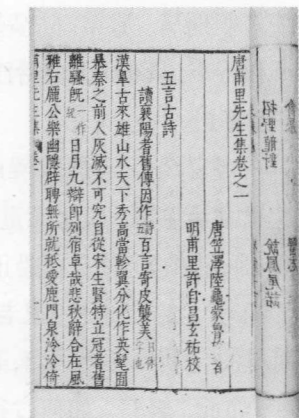 唐甫里先生集卷之一
唐笠澤陸龜蒙魯望
明甫里許自昌玄祐校
五言古詩
讀襄陽耆舊傳因作詩五百言寄皮襲美
漢皐古來雄山水天下秀高當軫翼分化作英髦囿
暴秦之前人灰滅不可究自從宋生賢特立冠耆舊
離騷旣日月九辯卽列宿卓哉悲秋辭合在風
雅右龐公樂幽隱辟聘無所就祗愛鹿門泉泠泠倚
甫里先生集 卷一